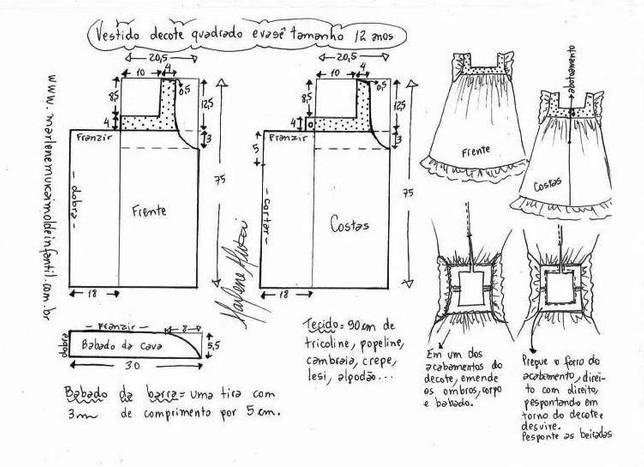 Vestido decote quadrado evasê tamanho 12 anos
20,5
4
10
0,5
8,5
12,5
4
3
Franzir
75
- dobra -
Frente
18
20,5
4
10
0,5
8,5
12,5
4
3
Franzir
5
75
- cortar -
Costas
18
www.marlenemukaimoldeinfantil.com.br
Marlene Mukai
- Franzir -
8
dobra
Babado da cava
5,5
30
Babado da barra = uma tira com
3m de comprimento por 5 cm.
Tecido = 90 cm de
tricoline, popeline,
cambraia, crepe,
lesi, algodão...
Frente
abotoamento
Costas
Em um dos
acabamentos do
decote, emende
os ombros, corpo
e babado.
Pregue o forro do
acabamento, direi-
to com direito,
pespontando em
torno do decote e
desvire.
Pesponte as beiradas